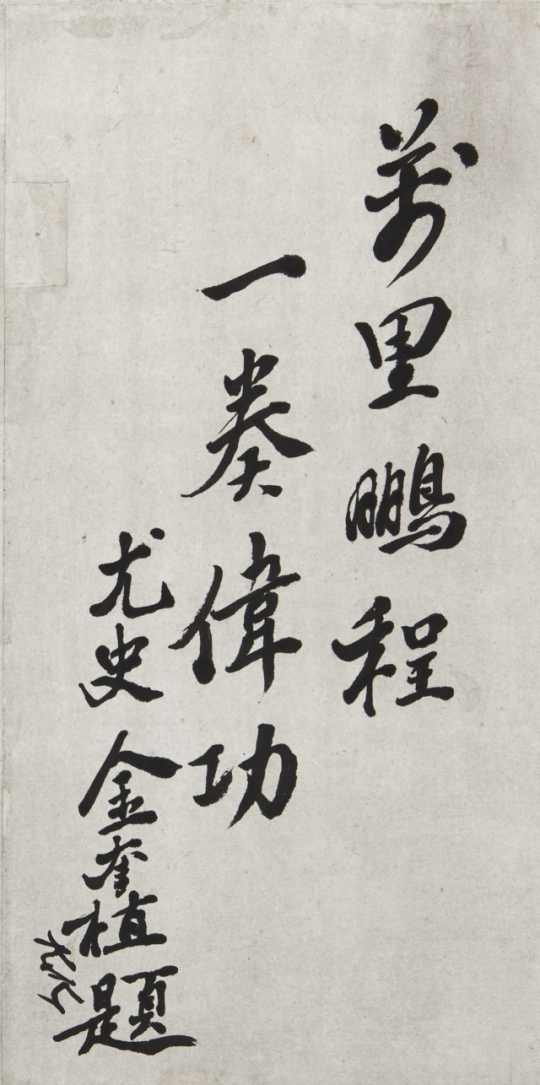 萬里鵬程
一奏偉功
尤史 金奎植 題